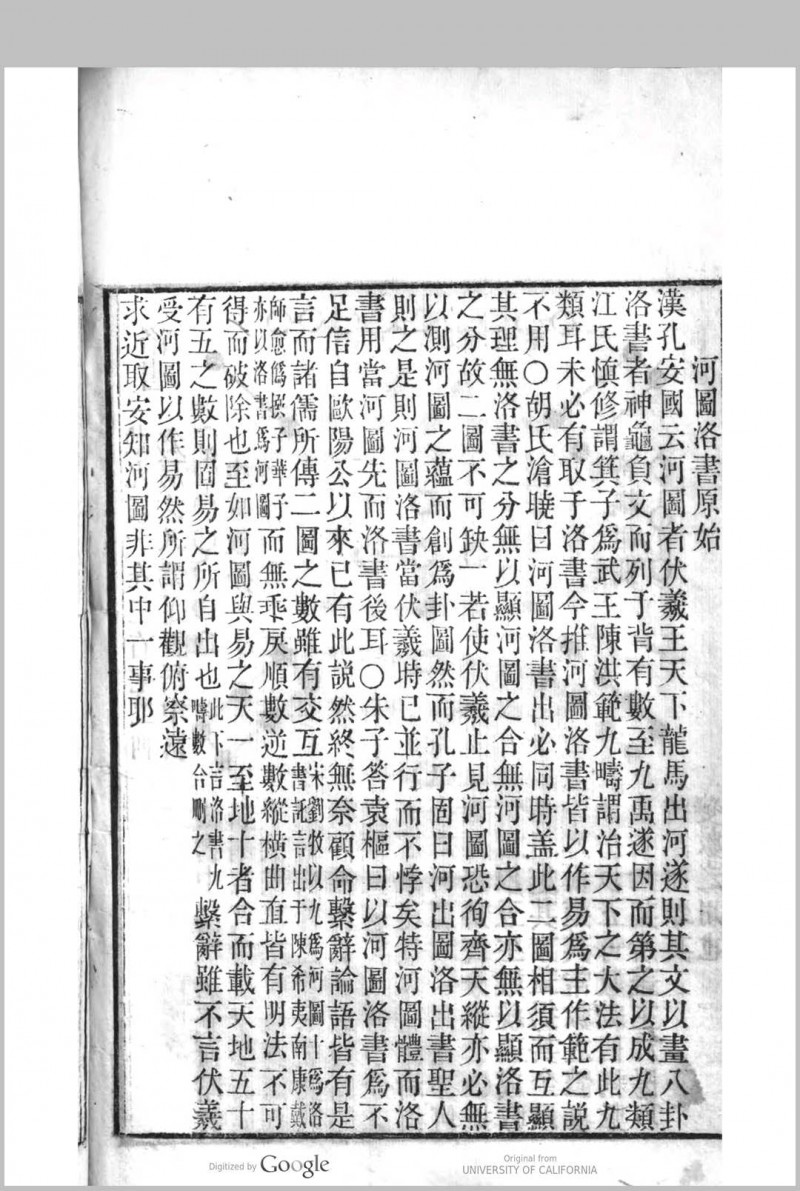 河圖洛書原始
漢孔安國云河圖者伏羲王天下龍馬出河遂則其文以畫八卦
洛書者神龜負文而列于背有數至九禹遂因而第之以成九類
江氏慎修謂箕子爲武王陳洪範九疇謂治天下之大法有此九
類耳未必有取于洛書今推河圖洛書皆以作易爲主作範之說
不用〇胡氏滄曉曰河圖洛書出必同時盖此二圖相須而互顯
其理無洛書之分無以顯河圖之合無河圖之合亦無以顯洛書
之分故二圖不可缺一若使伏羲止見河圖恐徇齊天縱亦必無
以測河圖之蘊而創爲卦圖然而孔子固曰河出圖洛出書聖人
則之是則河圖洛書當伏羲時已並行而不悖矣特河圖體而洛
書用當河圖先而洛書後耳〇朱子答袁樞曰以河圖洛書爲不
足信自歐陽公以來已有此說然終無奈顧命繫辭論語皆有是
言而諸儒所傳二圖之數雖有交互宋劉牧以九爲河圖十爲洛書託言出于陳希夷南康戴
師愈爲撰子華子亦以洛書爲河圖而無乖戾順數逆數縱橫曲直皆有明法不可
得而破除也至如河圖與易之天一至地十者合而載天地五十
有五之數則固易之所自出也此下言洛書九疇數台刪之繫辭雖不言伏羲
受河圖以作易然所謂仰觀俯察遠
求近取安知河圖非其中一事耶
Digitized by Google
Original from
UNIVERSITY OF CALIFORNIA